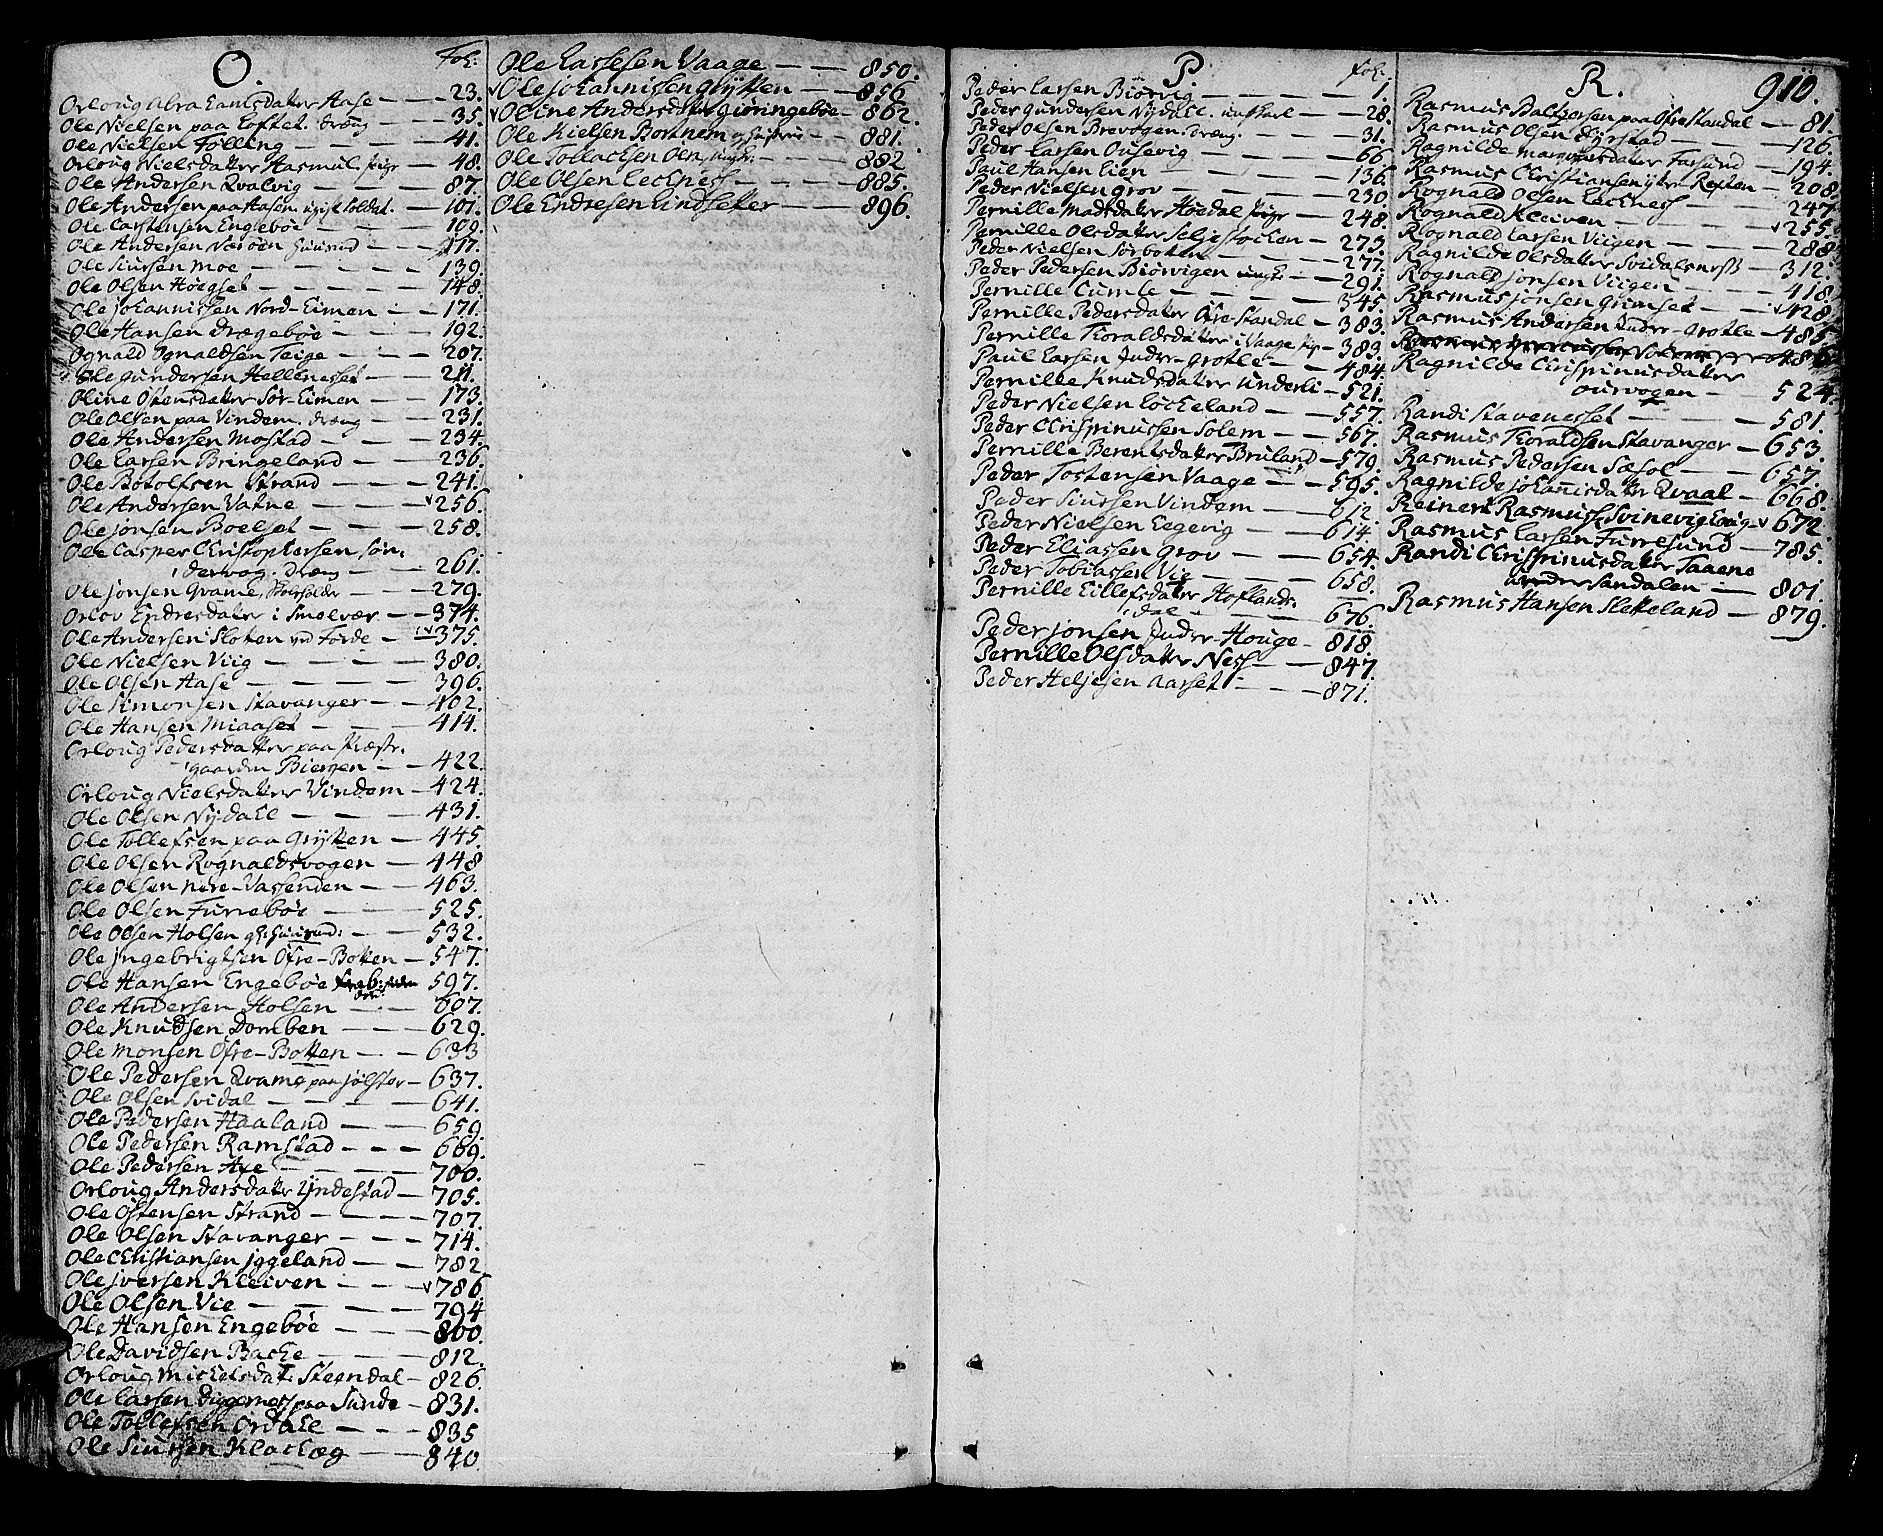 O.
Fol:
Orloug Abrahamsdatter Aase — — 23.
Ole Nielsen paa Loftet. dræng — 35.
Ole Nielsen Fölling — — — 41.
Orloug Nielsdatter Hasmul. pige 48.
Ole Andersen Qvalvig — — — 87.
Ole Andersen paa Aasen. ugift soldat. — 101.
Ole Carstensen Engeböe — — 109.
Ole Andersen Næröen — 117.
Ole Siursen Moe — — — — 139.
Ole Olsen Höegset — — — — 148.
Ole Johannissen Nord-Eimen — — 171.
Ole Hansen Drægeböe — — — 192.
Ognald Ognaldsen Teige — — — 207.
Ole Gundersen Hellenesset — — 211.
Oline Ostensdatter Sör-Eimen — — 173.
Ole Olsen paa Vindem. dræng — 231.
Ole Andersen Mostad — — — 234.
Ole Larsen Bringeland — — 236.
Ole Botolfsen Strand — — — 241.
Ole Andersen Vatne — — — 256.
Ole Jonsen Boelset — — — 258.
Ole Casper Christophersen Sön:
dervog. Dræng — — 261.
Ole Jonsen Qvame, — — 279.
Orlov Endresdatter i Smelvær — — 374.
Ole Andersen Sloten ved Förde — 375.
Ole Nielsen Viig — — — — 380.
Ole Olsen Aase — — — — 396.
Ole Simonsen Stavanger — — 402.
Ole Hansen Miaaset — — — 414.
Orloug Pedersdatter paa Præste:
gaarden Biergen — — 422.
Orloug Nielsdatter Vindem — 424.
Ole Olsen Nydahl — — — 431.
Ole Tollefsen paa Grytten — — 445.
Ole Olsen Rognaldsvogen — — 448
Ole Olsen nere-Vassenden — — 463.
Ole Olsen Furreböe — — — 525.
Ole Olsen Holsen — — 532.
Ole Ingebrigtsen Öfre-Botten — 547.
Ole Hansen Engeböe 597.
Ole Andersen Holsen — — 607.
Ole Knudsen Domben — — — 629.
Ole Monsen Öfre-Botten — — — 633
Ole Pedersen Qvame paa Jölster — 637.
Ole Olsen Svidal — — — — 641.
Ole Pedersen Haaland — — — 659.
Ole Pedersen Ramstad — — — 669.
Ole Pedersen Axe — — — — 700.
Orloug Andersdatter Yndestad — 705.
Ole Östensen Strand — — — 707.
Ole Olsen Stavanger — — — 714.
Ole Christiansen Yggeland — — — 782
Ole Iversen Kleiven — — — 786.
Ole Olsen Vie — — — — 794
Ole Hansen Engeböe — — — 800.
Ole Davidsen Backe — — — 812.
Orloug Michelsdatt: Steendal — 826.
Ole Larsen Diggernes paa Sunde — 831.
Ole Tollefsen Ördahl — — — 835
Ole Siursen Klachæg — — 840
Ole Lassesen Vaage — — 850.
Ole Johannissen Grytten — — 856
Oline Andersdatter Giöringeböe — 862.
Ole Nielsen Bortnem — 881.
Ole Tollachsen Oen, ungk: — — 882
Ole Olsen Lechness — — — 885.
Ole Endresen Lindseter — — 896.
P.
fol:
Peder Larsen Biörvig — — — 1.
Peder Gundersen Nydahl. ungkarl — 28.
Peder Olsen Brevogen. Dræng. — 31.
Peder Larsen Ousevig — — — 66.
Paul Hansen Lien — — — — 136.
Peder Nielsen Grov — — — — 230.
Pernille Madsdatter Höedal pige — 248.
Pernille Olsdatter Seljestochen — 273.
Peder Nielsen Sörbotten — — 277.
Peder Pedersen Biörvigen ungk: — 291.
Pernille Cumle — — — — 345.
Pernille Pedersdatter Öfre-Standal — 383.
Pernille Thoraldsdatter i Vaage pige — 383.
Paul Larsen Inder-Grotle — — 484.
Pernille Knudsdatter Underli — 521.
Peder Nielsen Lockeland — — 557.
Peder Chrispinussen Solem — — 567.
Pernille Berentsdatter Bruland — 579.
Peder Tostensen Vaage — — 595.
Peder Siursen Vindem — — — 612
Peder Nielsen Legevig — — — 614.
Peder Eliassen Grov — — — 654.
Peder Tobiassen Vie — — — 658.
Pernille Eillefsdatter Hoflands:
dal — — — 676.
Peder Jonsen Inder-Houge — 818.
Pernille Olsdatter Ness — — 847.
Peder Heljesen Aarset — — — 871.
R.
910.
Rasmus Baltzersen paa Öfre Standal — 81.
Rasmus Olsen Dyrstad — — — 126.
Ragnilde Marcusdatter Farsund — 194.
Rasmus Christiansen ytre Rexten — 208.
Rognald Olsen Lechness — — 247.
Rognald Kleiven — — — 255.
Rognald Larsen Viigen — — — 288.
Ragnilde Olsdatter Svidalsnest — 312.
Rognald Jonsen Viigen — — — 418.
Rasmus Jonsen Grimset — — 428.
Rasmus Andersen Inder-Grotle — 485.
Ragnilde Chrispinusdatter
Ourvogen — 524.
Randi Stavenesset — — — 581.
Rasmus Thoraldsen Stavanger — 653.
Rasmus Pedersen Sæsol — — 657.
Ragnilde Johannisdatter Qvaal — 668.
Reinert Rasmuss. Svinevig — 672.
Rasmus Larsen Furresund — 785.
Randi Chrispinusdatter Taaene
Sandalen — — 801.
Rasmus Hansen Sletteland — 879.